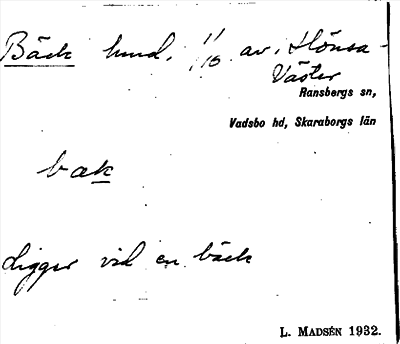 Bäck hmd, 1/16 av. Hönsa-
Väster
Ransbergs sn,
Vadsbo hd, Skaraborgs län
bæk
Ligger vid en bäck
L. MADSÉN 1932.